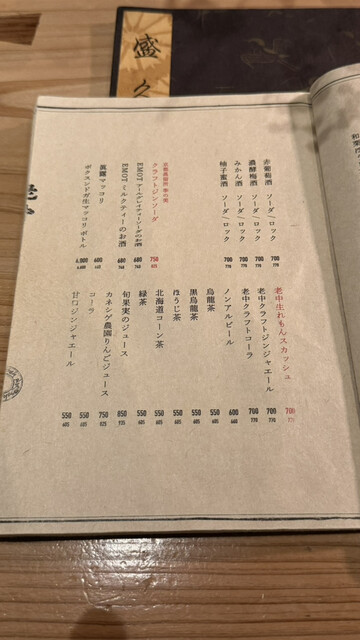 盛
赤葡萄酒 ソーダ/ロック 700 770
濃醇梅酒 ソーダ/ロック 700 770
みかん酒 ソーダ/ロック 700 770
柚子蜜酒 ソーダ/ロック 700 770
クラフトジンソーダ 750 825
EMOT アールグレイティーソーダのお酒 680 748
EMOT ミルクティーのお酒 680 748
眞露マッコリ 600 660
ボクスンドガ生マッコリ ボトル 6,000 6,600
老中生れもんスカッシュ 700 770
老中クラフトジンジャエール 700 770
老中クラフトコーラ 700 770
ノンアルビール 600 660
烏龍茶 550 605
黒烏龍茶 550 605
ほうじ茶 550 605
北海道コーン茶 550 605
緑茶 550 605
旬果実のジュース 850 935
カネシゲ農園りんごジュース 750 825
コーラ 550 605
甘口ジンジャエール 550 605